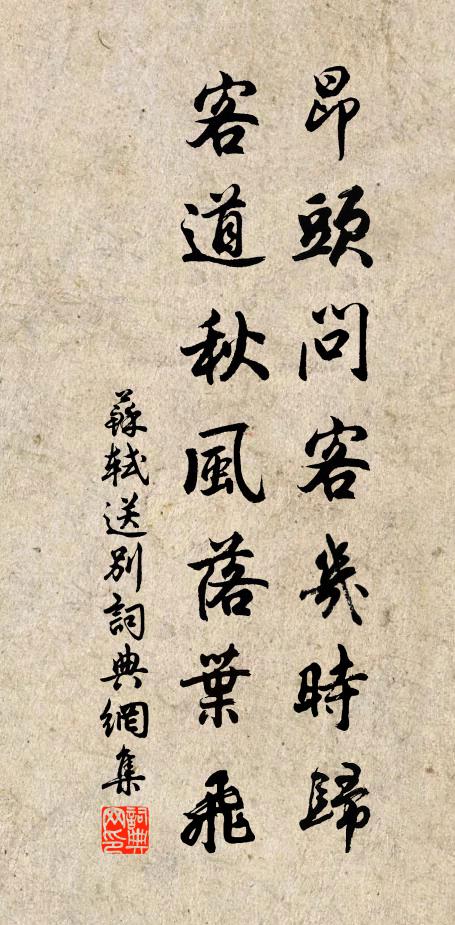 昂頭問客幾時歸
客道秋風落葉飛
蘇軾送別詞典網集
詞典网印